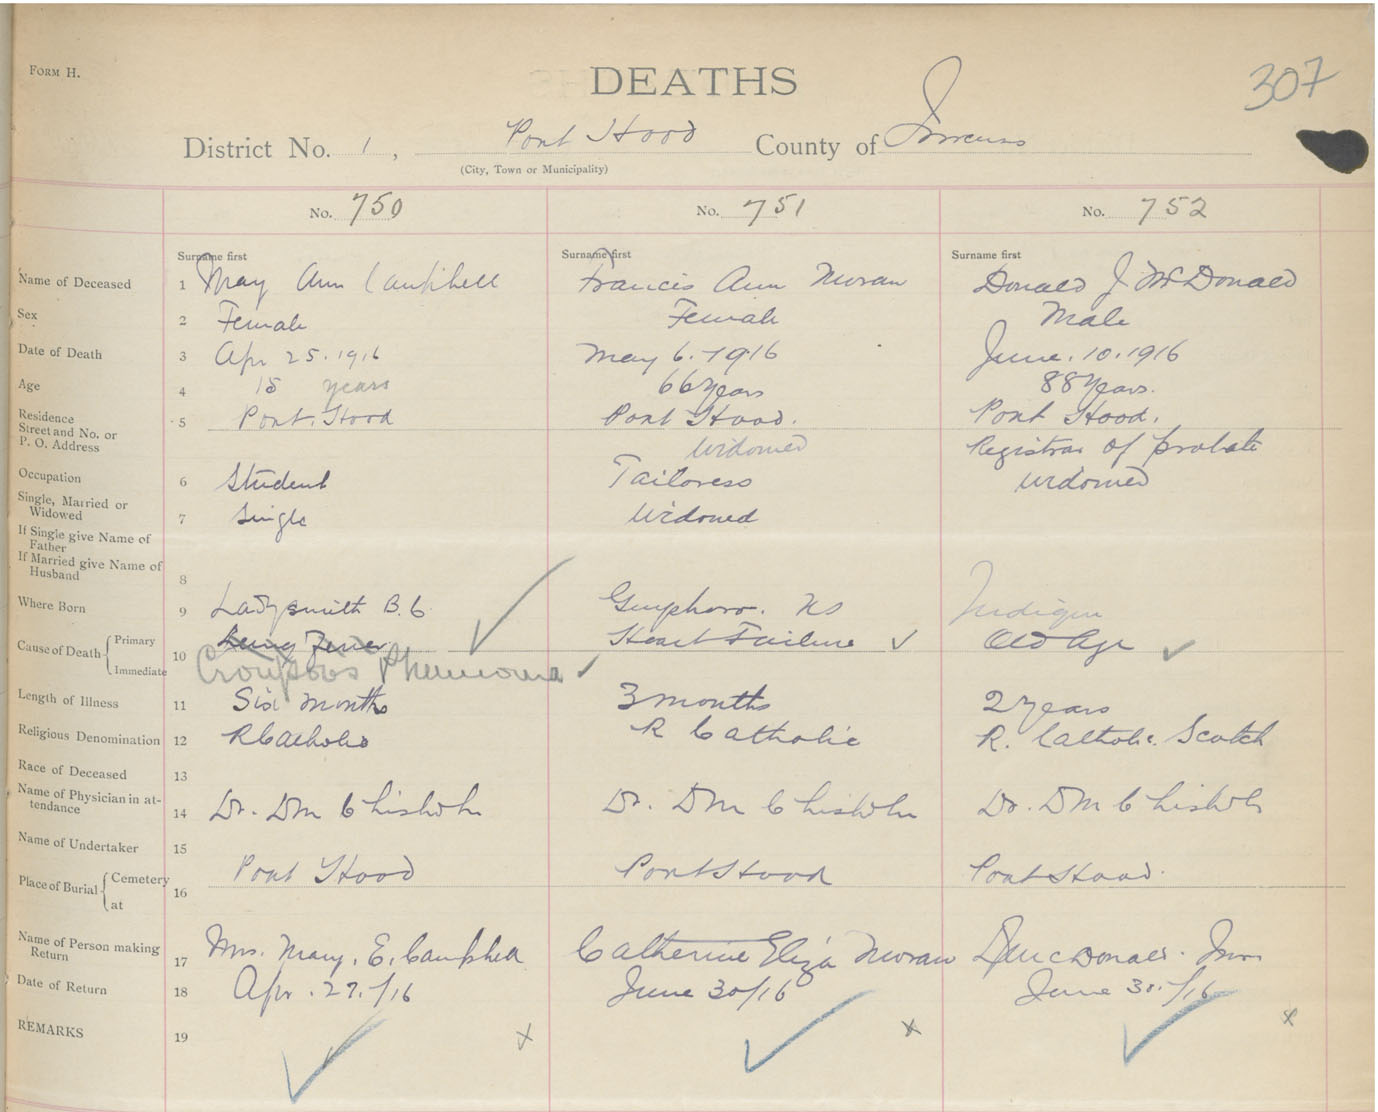 FORM H.
DEATHS
307
District No. 1, Port Hood County of Inverness
(City, Town or Municipality)
No. 750 No. 751 No. 752
Surname first Surname first Surname first
Name of Deceased 1 Mary Ann Campbell Francis Ann Moran Donald J McDonald
Sex 2 Female Female Male
Date of Death 3 Apr 25. 1916 May 6. 1916 June. 10. 1916
Age 4 15 years 66 years 88 years.
Residence Street and No. or P. O. Address 5 Port. Hood Port Hood. Port Hood.
Widowed Registrar of probate
Occupation 6 Student Tailoress widowed
Single, Married or Widowed 7 Single Widowed
If Single give Name of Father
If Married give Name of Husband 8
Where Born 9 Ladysmith B.C. N S
Cause of Death { Primary Lung Fever Heart Failure Old Age
Immediate 10 Croupous Pneumonia
Length of Illness 11 Six months 3 months 2 years
Religious Denomination 12 R Catholic R Catholic R. Catholic. Scotch
Race of Deceased 13
Name of Physician in attendance 14 Dr. D M Chisholm Dr. D M Chisholm Dr. D M Chisholm
Name of Undertaker 15
Place of Burial { Cemetery Port Hood Port Hood Port Hood.
at 16
Name of Person making Return 17 Mrs. Mary. E. Campbell Catherine Eliza Moran McDonald.
Date of Return 18 Apr. 27./16 June 30/16 June 30./16
REMARKS 19 x x x